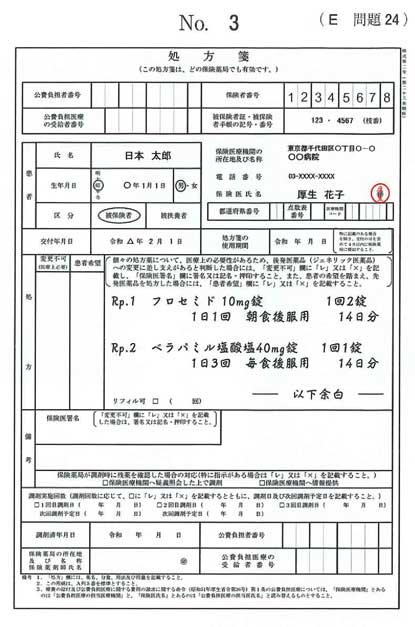 No. 3
(E 問題24)
処方箋
(この処方箋は、どの保険薬局でも有効です。)
公費負担者番号
保険者番号
1 2 3 4 5 6 7 8
公費負担医療の受給者番号
被保険者証・被保険者手帳の記号・番号
123 ・ 4567 (枝番)
患者
氏名
日本 太郎
生年月日
明
大
昭
平
令
〇年1月1日
男・女
区分
被保険者
被扶養者
保険医療機関の所在地及び名称
東京都千代田区〇丁目〇-〇
〇〇病院
電話番号
03-XXXX-XXXX
保険医氏名
厚生 花子
都道府県番号
点数表番号
医療機関コード
交付年月日
令和 △年 2月 1日
処方箋の使用期間
令和 年 月 日
特に記載のある場合を除き、交付の日を含めて4日以内に保険薬局に提出すること。
処方
変更不可(医療上必要)
患者希望
個々の処方薬について、医療上の必要性があるため、後発医薬品(ジェネリック医薬品)
への変更に差し支えがあると判断した場合には、「変更不可」欄に「レ」又は「×」を記載
し、「保険医署名」欄に署名又は記名・押印すること。また、患者の希望を踏まえ、先
発医薬品を処方した場合には、「患者希望」欄に「レ」又は「×」を記載すること。
Rp.1 フロセミド 10mg錠 1回2錠
1日1回 朝食後服用 14日分
Rp.2 ベラパミル塩酸塩40mg錠 1回1錠
1日3回 毎食後服用 14日分
以下余白
リフィル可 □ ( 回)
備考
保険医署名
「変更不可」欄に「レ」又は「×」を記載
した場合は、署名又は記名・押印すること。
保険薬局が調剤時に残薬を確認した場合の対応(特に指示がある場合は「レ」又は「×」を記載すること。)
□保険医療機関へ疑義照会した上で調剤 □保険医療機関へ情報提供
調剤実施回数(調剤回数に応じて、□に「レ」又は「×」を記載するとともに、調剤日及び次回調剤予定日を記載すること。)
□1回目調剤日( 年 月 日) □2回目調剤日( 年 月 日) □3回目調剤日( 年 月 日)
次回調剤予定日( 年 月 日) 次回調剤予定日( 年 月 日)
調剤済年月日
令和 年 月 日
公費負担者番号
保険薬局の所在地及び名称
保険薬剤師氏名
㊞
公費負担医療の受給者番号
備考 1.「処方」欄には、薬名、分量、用法及び用量を記載すること。
2.この用紙は、A列5番を標準とすること。
3.療養の給付及び公費負担医療に関する費用の請求に関する命令(昭和51年厚生省令第36号)第1条の公費負担医療については、「保険医療機関」とある
のは「公費負担医療の担当医療機関」と、「保険医氏名」とあるのは「公費負担医療の担当医氏名」と読み替えるものとすること。